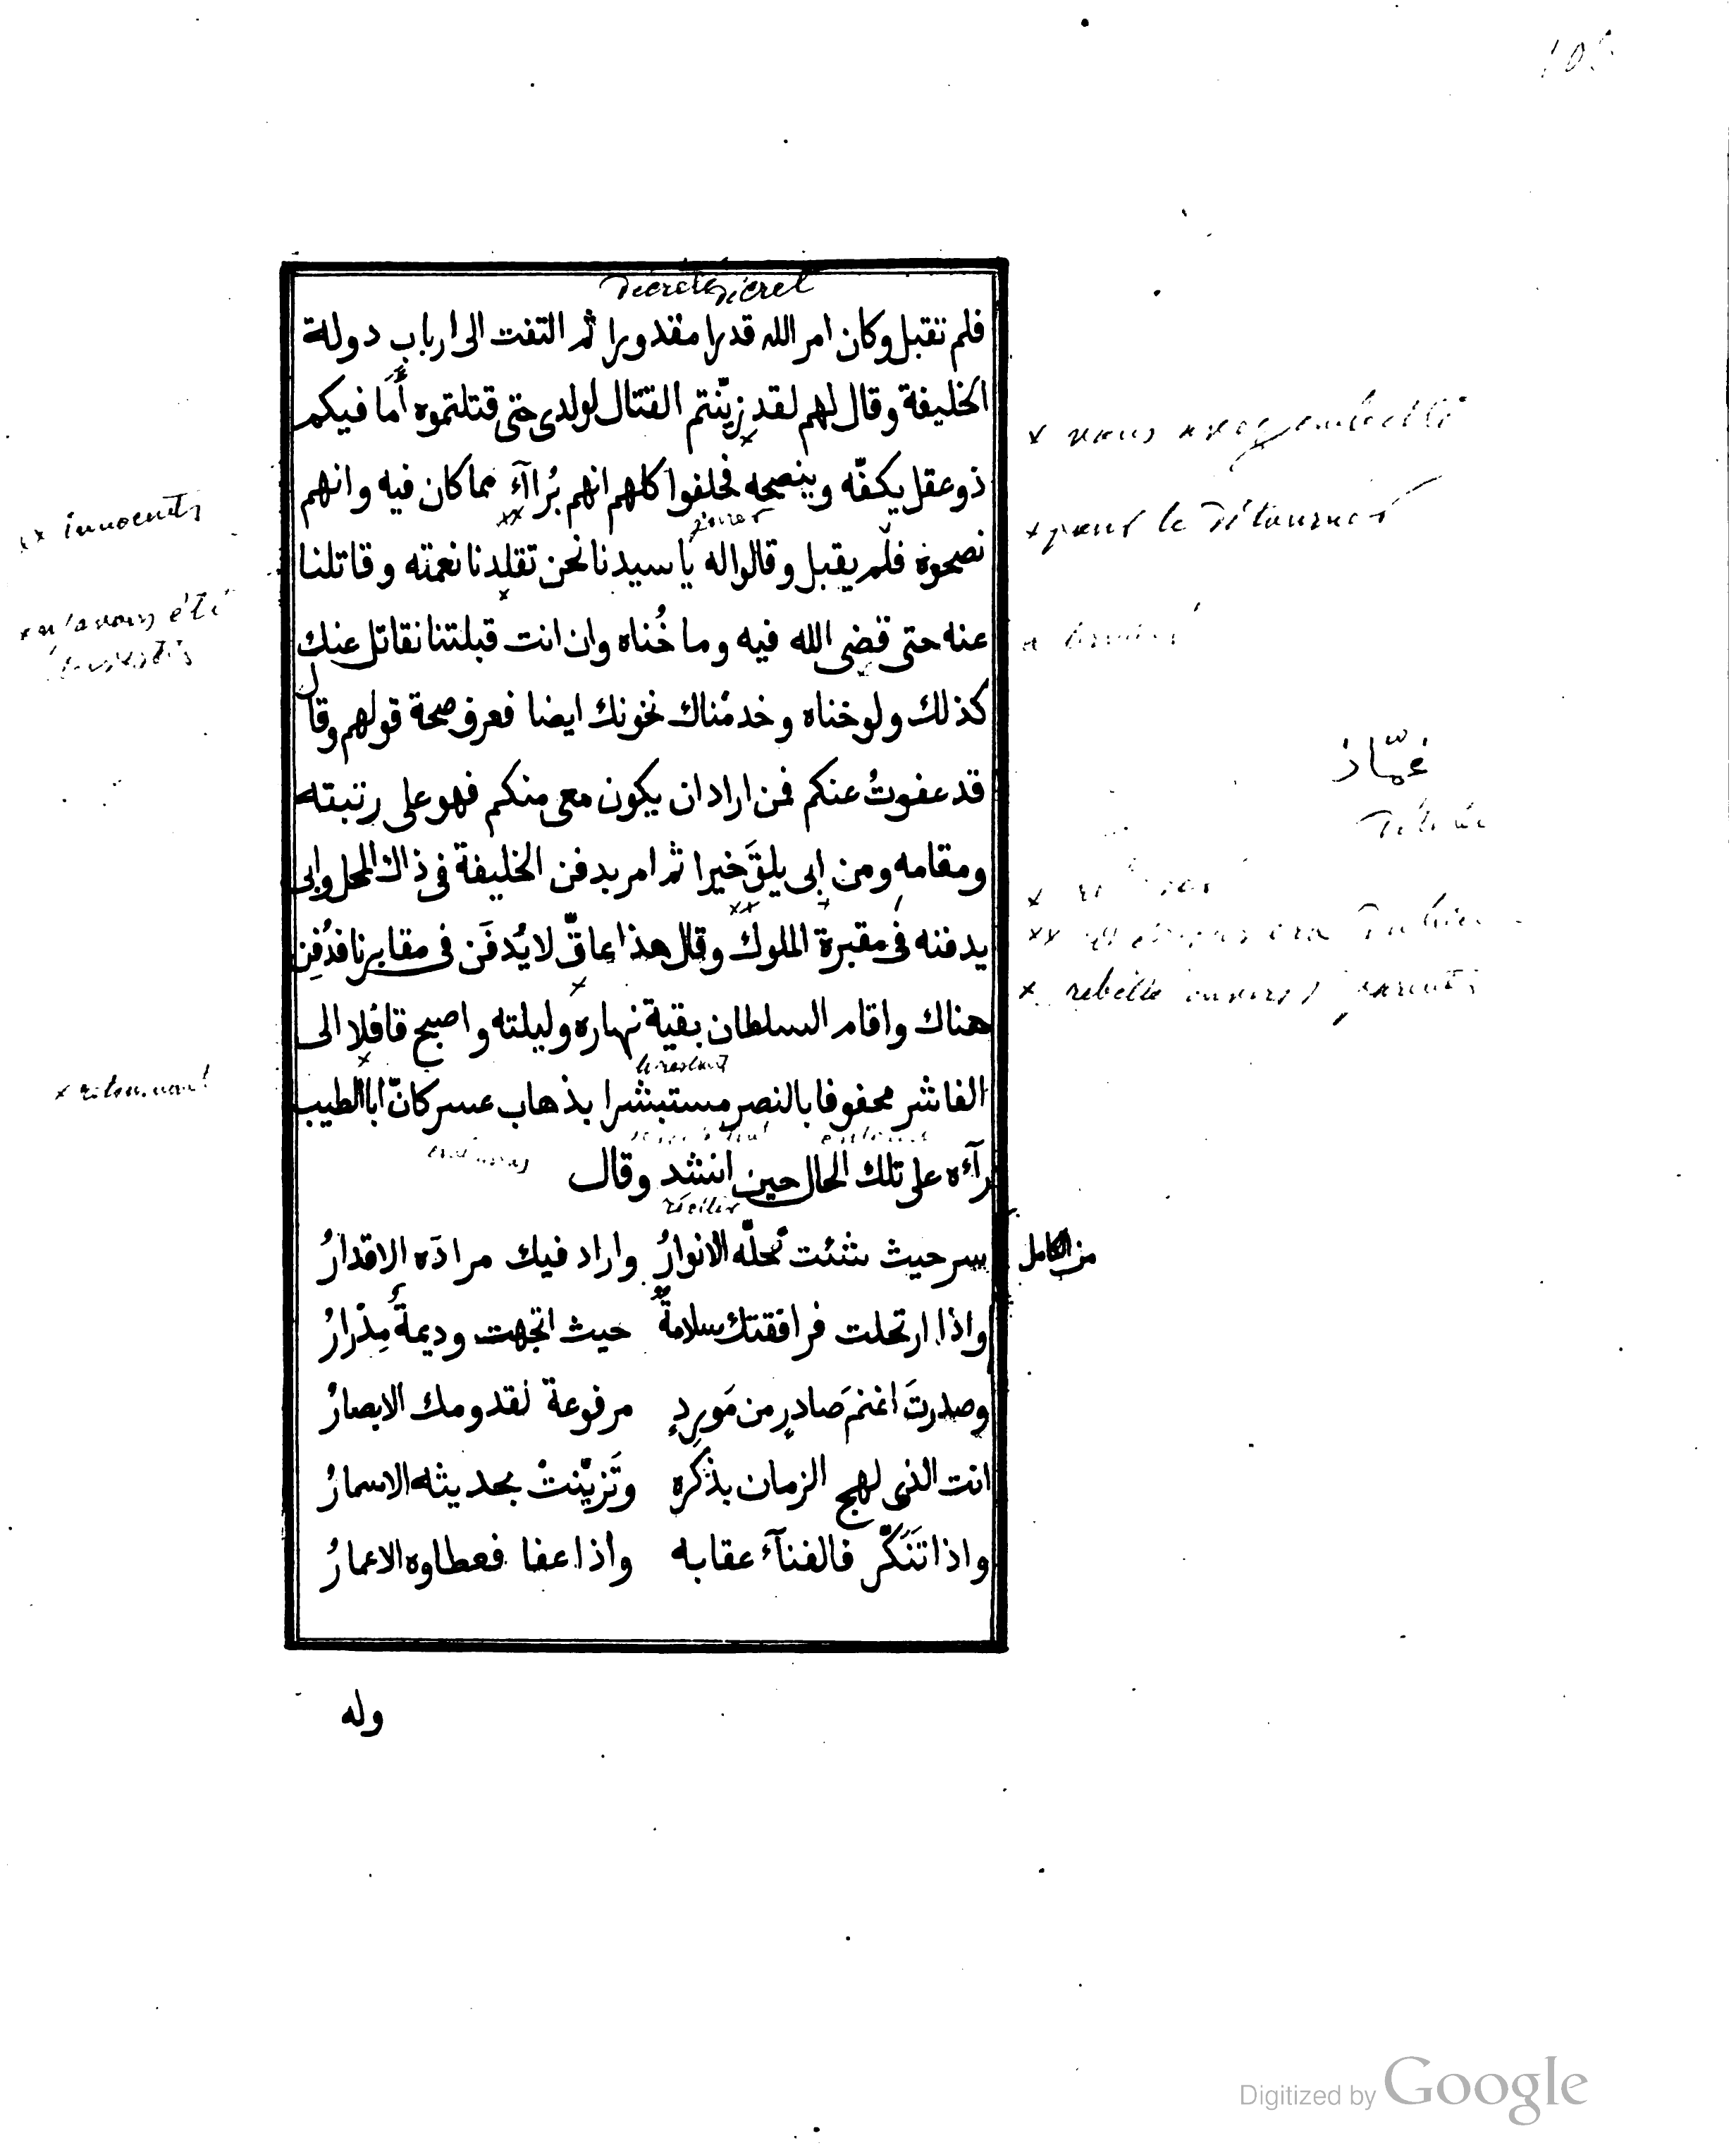 decrété decret
فلم تقبل وكان امر الله قدرا مقدورا ثم التفت الى ارباب دولة
الخليفة وقال لهم لقد زيّنتم القتال لولدى حتى قتلتموه أَمَا فيكم
x vous avez embelli
ذو عقل يكفّه وينصحه فحلفوا كلهم انهم بُراآء مما كان فيه وانهم
xx innocents
x pour le détourner
نصحوه فلم يقبل وقالوا له يا سيدنا نحن تقلدنا نعمته وقاتلنا
عنه حتى قضى الله فيه وما خُناه وان انت قبلتنا نقاتل عنك
كذلك ولو خناه وخدمْناك نخونك ايضا فعرف صحة قولهم وقال
غمّاز
قد عفوتُ عنكم فمن اراد ان يكون معى منكم فهو على رتبته
ومقامهِ ومن ابى يلقَ خيرا ثم امر بدفن الخليفة فى ذاك المحل وابى
يدفنه فى مقبرة الملوك وقال هذا عاقّ لا يُدفَن فى مقابرنا فدُفِن
x rebelle envers parents
هناك واقام السلطان بقية نهاره وليلته واصبح قافلا الى
x retournant
الفاشر محفوفا بالنصر مستبشرا بذهاب عسر كانّ ابا الطيب
رآءه على تلك الحال حين انشد وقال
réciter
من الكامل
سر حيث شئت تحلّه الانوارُ واراد فيك مرادَه الاقدارُ
واذا ارتحلت فرافقتك سلامةٌ حيث اتجهت وديمةٌ مِدْرارُ
وصدرتَ اغنمَ صادرٍ من مَورِدٍ مرفوعة لقدومك الابصارُ
انت الذى لهج الزمان بذكره وتَزيّنتْ بحديثه الاسمارُ
واذا تَنَكّر فالفنآء عقابه واذا عفا فعطاوه الاعمارُ
وله
Digitized by Google